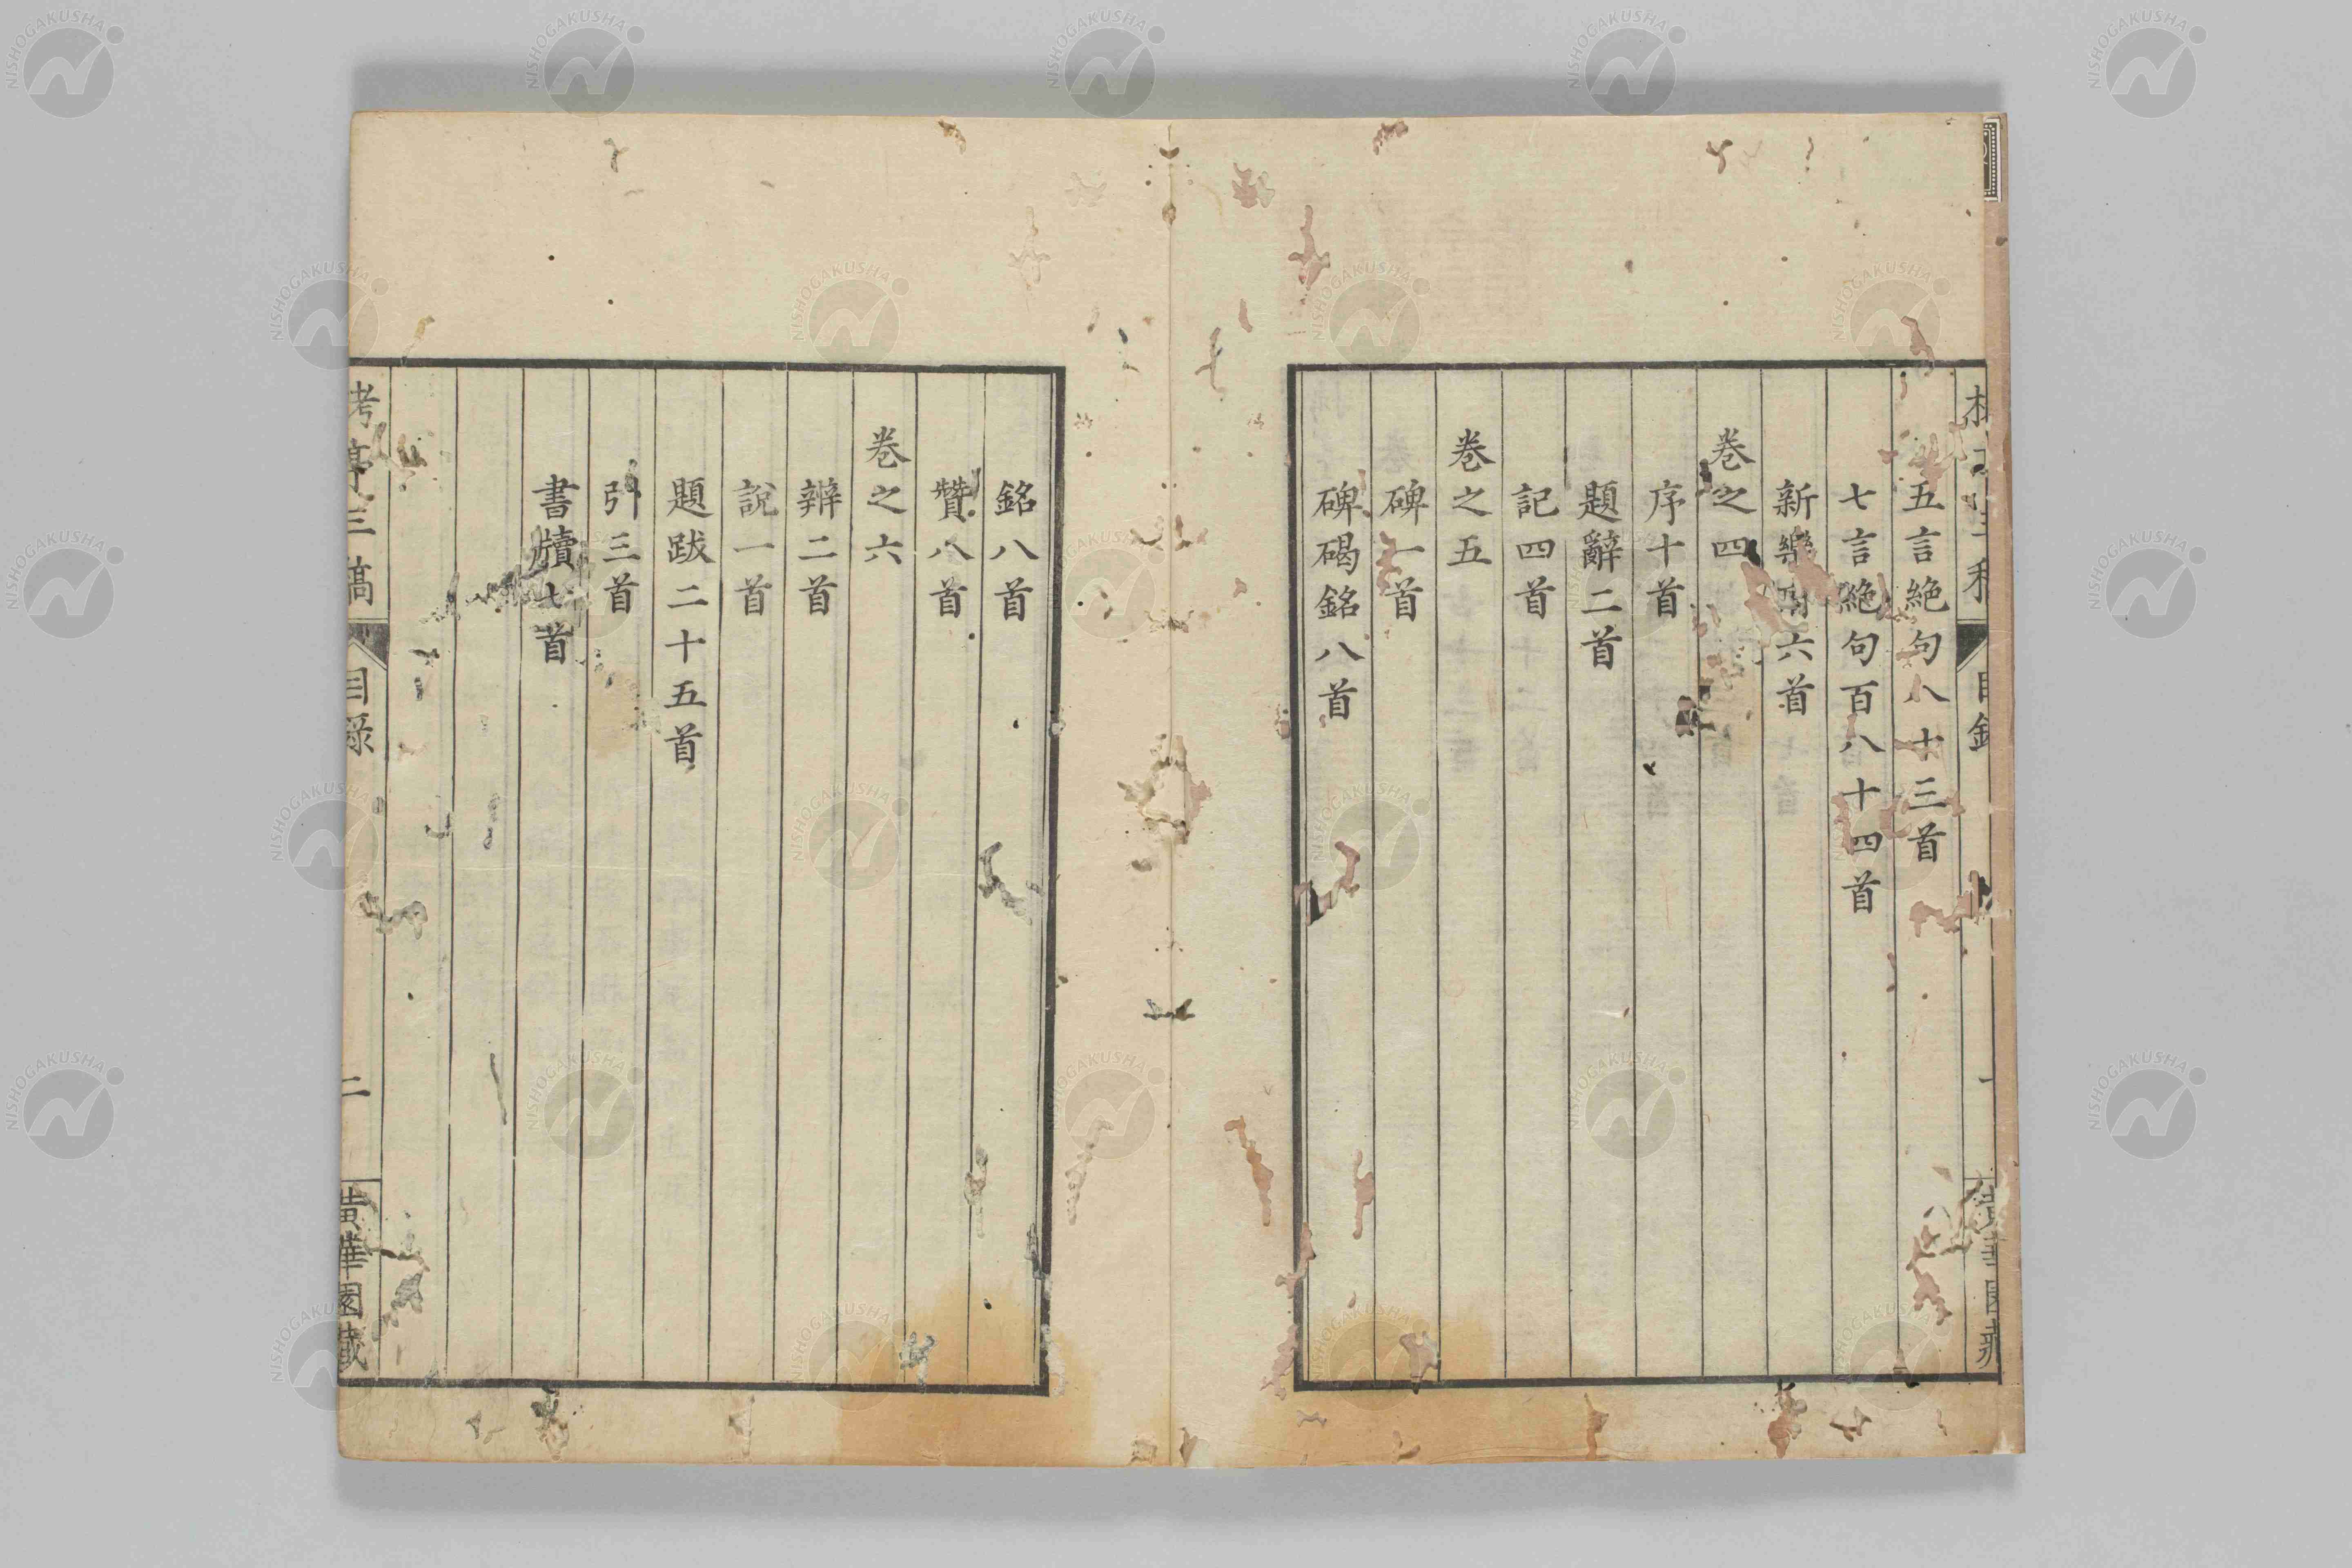 五言絶句八十三首
七言絶句百八十四首
新樂府六首
卷之四
序十首
題辭二首
記四首
卷之五
碑一首
碑碣銘八首
銘八首
贊八首
卷之六
辨二首
說一首
題跋二十五首
引三首
書牘七首
亭三稿
目錄
二
黃華園藏
NISHOGAKUSHA